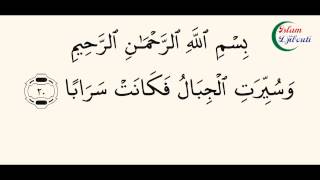 Islam
Djibouti
بِسْمِ ٱللَّهِ ٱلرَّحْمَـٰنِ ٱلرَّحِيمِ
وَسُيِّرَتِ ٱلْجِبَالُ فَكَانَتْ سَرَابًا ٢٠